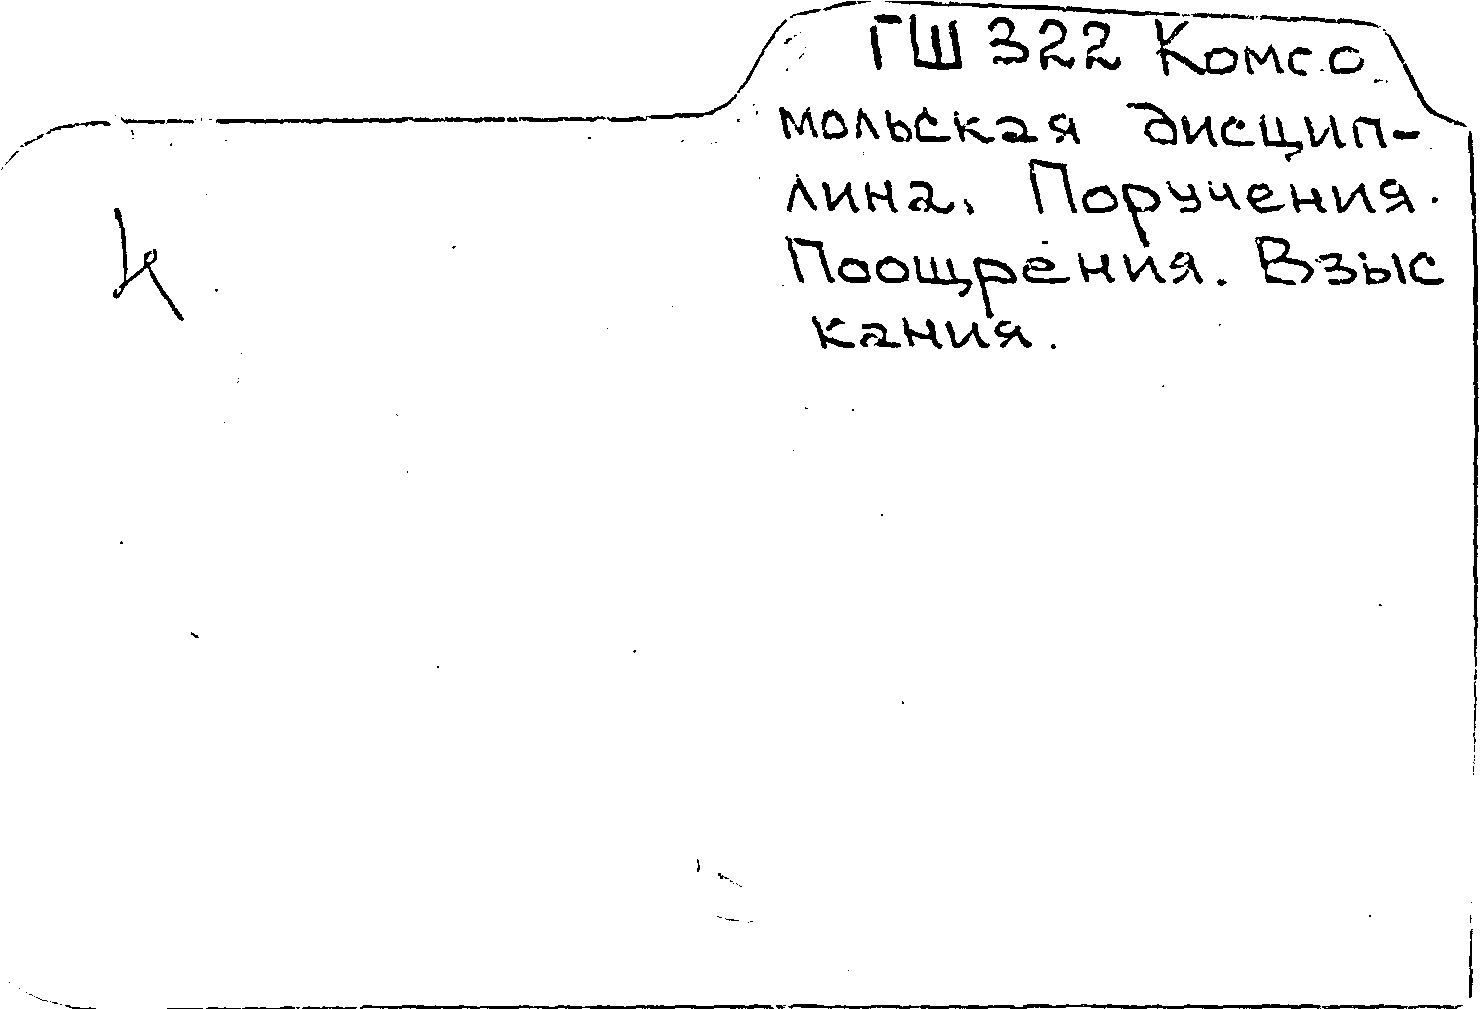 ГШ 322 Комсо
мольская дисцип-
лина. Поручения.
Поощрения. Взыс
кания.